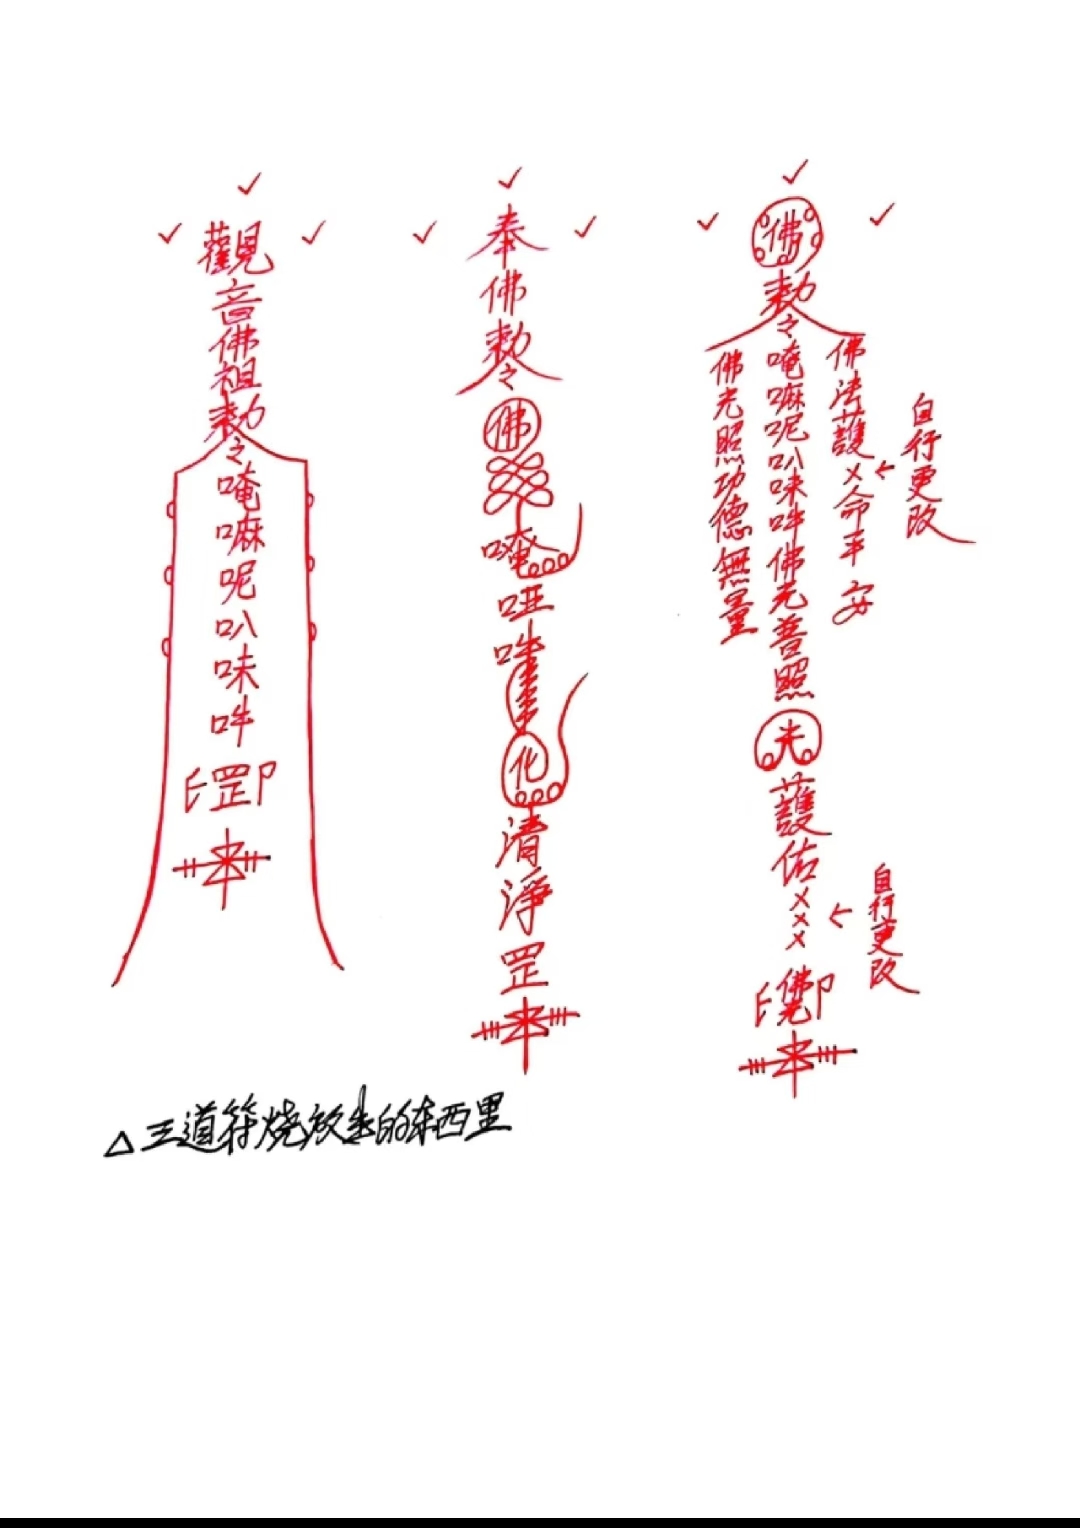 觀音佛祖勅令
唵嘛呢叭咪吽
罡印
奉佛勅令
佛
唵
啞
吽
化
清淨罡
佛
勅令
佛光照功德無量
唵嘛呢叭咪吽佛光普照
佛法護×命平安
自行更改
光
護佑×××
自行更改
佛光印
△三道符烧放生的东西里